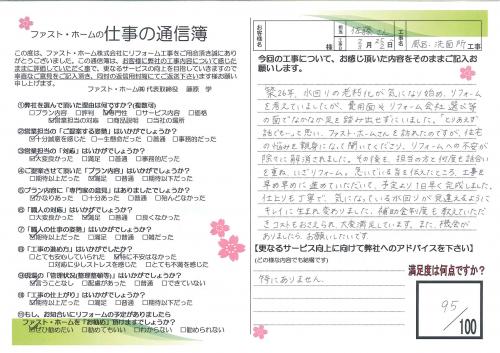 ファスト・ホームの仕事の通信簿
この度は、ファスト・ホーム株式会社にリフォーム工事をご用命頂き誠にありがとうございました。この通信簿は、お客様に弊社の工事内容について感じたままに評価していただく事で、更なるサービスの向上を目指していきますので率直なご意見をご記入頂き、同封の返信用封筒にてご返送下さいます様お願い申し上げます。
ファスト・ホーム㈱ 代表取締役 藤原 学
①弊社を選んで頂いた理由は何ですか?(複数可)
□プラン内容 □評判 ☑専門性 □サービス内容 □価格
☑営業担当の対応 □商品説明 □近くの場所
②営業担当の「ご提案する姿勢」はいかがでしょうか?
☑十分誠意を感じた □一生懸命だった □普通 □事務的だった
③営業担当の「対応」はいかがでしょうか?
☑大変良かった □満足 □普通 □事務的だった
④ご提案させて頂いた「プラン内容」はいかがでしたか?
☑期待以上だった □満足 □普通 □期待以下だった
⑤プラン内容に「専門家の意見」はありましたでしょうか?
☑かなりあった □十分あった □普通 □殆んどなかった
⑥「職人の対応」はいかがでしょうか?
☑大変良かった □満足 □普通 □良くなかった
⑦「職人の仕事の姿勢」はいかがでしょうか?
☑期待以上だった □満足 □普通 □雑だった
⑧「工事の進め方」はいかがでしたか?
□とても安心していられた ☑特に不安はなかった
□対応に少しストレスを感じた □とても不満を感じた
⑨現場の「管理状況(整理整頓等)」はいかがでしょうか?
☑言うことなし □配慮があった □普通 □できていない
⑩「工事の仕上がり」はいかがでしょうか?
☑期待以上だった □満足 □普通 □期待以下だった
⑪もし、お知合いにリフォームの予定がありましたら
ファスト・ホームを「お勧め」頂けますでしょうか?
☑ぜひ勧めたい □勧めてもいい □わからない □勧められない
お客様名
佐藤 さん
様
工事
風呂、洗面所
工事
今回の工事について、お感じ頂いた内容をそのままご記入お願いします。
築26年、水回りの老朽化が気になり始め、リフォーム
を考えていましたが、費用面やリフォーム会社選び等
の面でなかなか足を踏み出せずにいました。「とりあえず
話でも…」と思い、ファスト・ホームさんを訪れたのですが、住宅
の悩みを親身になって聞いてくださり、リフォームへの不安が
除々に解消されました。その後も、担当の方と何度も話合い
を重ね、いざリフォーム。思っている旨を伝えたところ、工事を
早め早めに進めていただいて、予定より1日早く完成しました。
仕上りも丁寧で、気になっている水回りが見違えるように
キレイに生まれ変わりました。補助金制度も教えていただ
きコストもおさえられ、大変満足しています。また、機会が
ありましたら、お願いしたいです。
【更なるサービス向上に向けて弊社へのアドバイスを下さい】
(どの様な内容でも結構です)
特にありません。
満足度は何点ですか?
95
/100